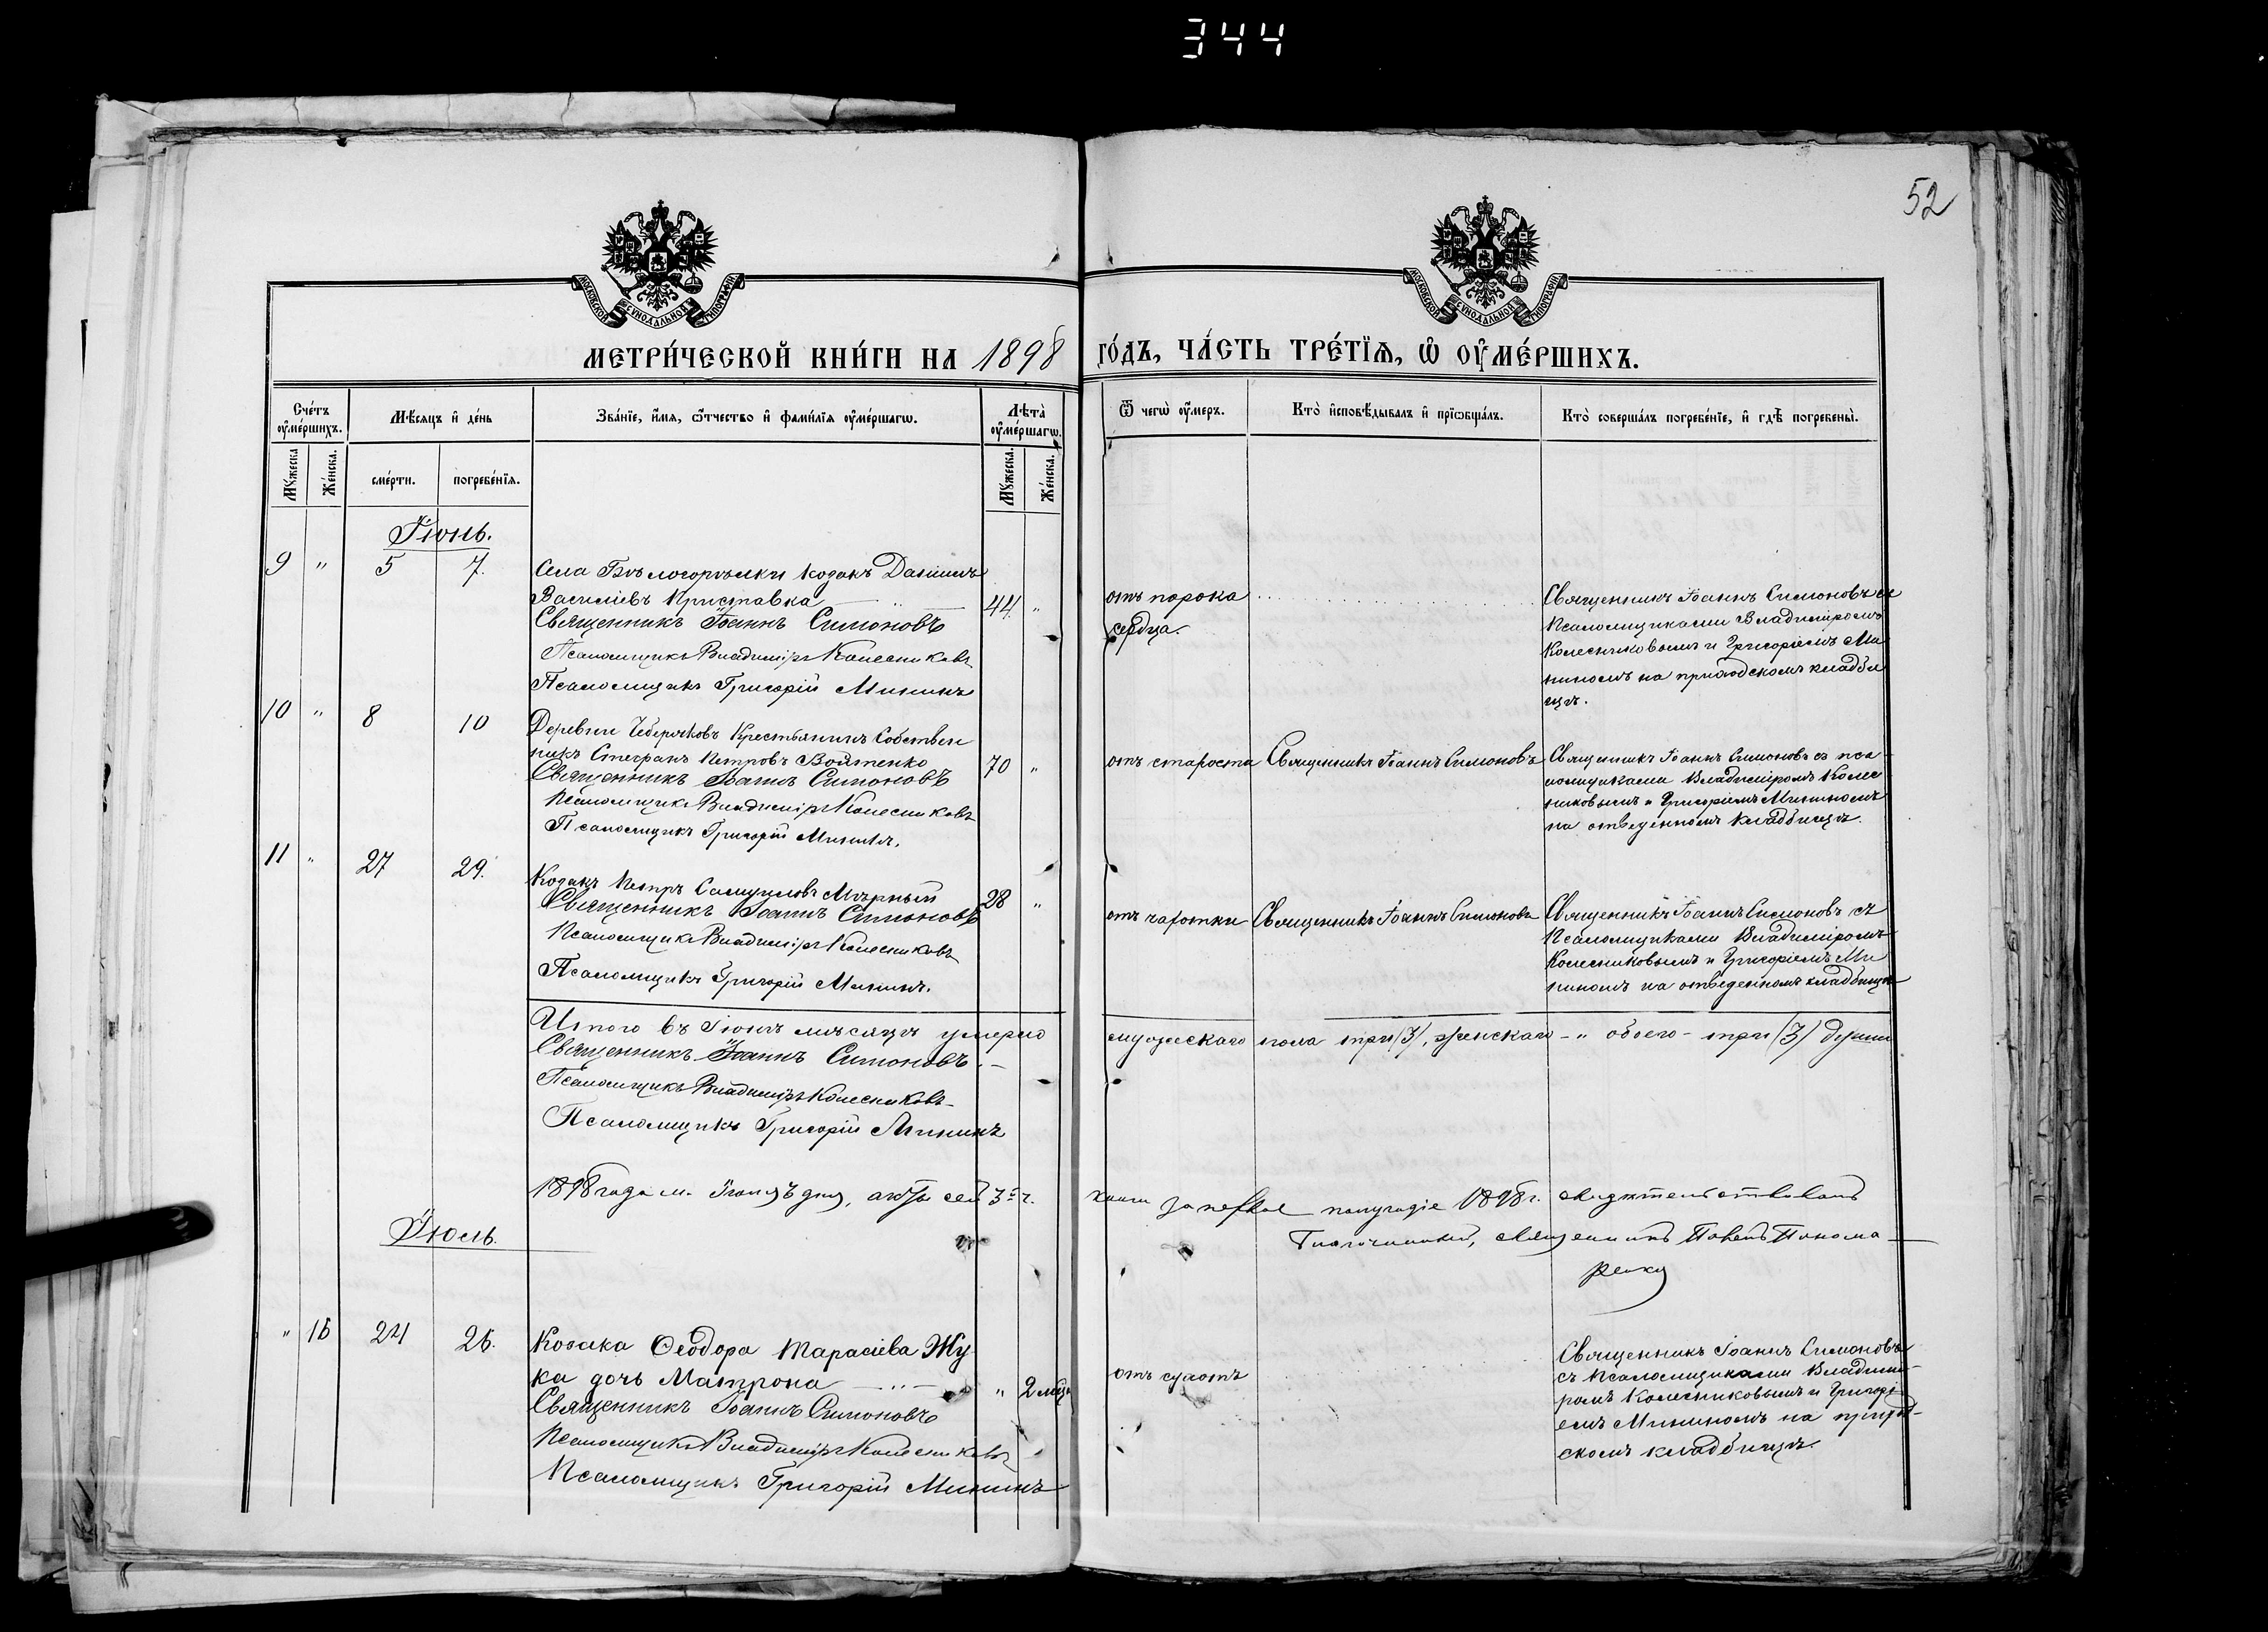 344
52
МОСКОВСКОЙ СУНОДАЛЬНОЙ ТИПОГРАФІИ
МОСКОВСКОЙ СУНОДАЛЬНОЙ ТИПОГРАФІИ
МЕТРИ́ЧЕСКОЙ КНИ́ГИ НА 1898 ГО́ДЪ, ЧА́СТЬ ТРЕ́ТЇѦ, Ѡ ОУМЕ́РШИХЪ.
Сче́тъ оумершихъ.
Мѣсяцъ и день
Зва́нїе, и́мя, ѻтчество и фами́лїя оуме́ршагѡ.
Лѣта оуме́ршагѡ.
Ѿ чегѡ оумеръ.
Кто исповѣдывалъ и прїѡбщалъ.
Кто соверша́лъ погребе́нїе, и гдѣ погребены.
Мꙋжеска
Же́нска.
сме́рти.
погребе́нїя.
Мꙋжеска.
Же́нска.
Іюнь.
9 " 5 7.
Села Бѣлогорѣлки козакъ Даніилъ
Василіевъ Приставка 44. "
Священникъ Іоаннъ Симоновъ
Псаломщикъ Владиміръ Колесниковъ
Псаломщикъ Григорій Мининъ
отъ порока
сердца.
Священникъ Іоаннъ Симоновъ съ
Псаломщиками Владиміромъ
Колесниковымъ и Григоріемъ Ми
нинымъ на приходскомъ кладби
щѣ.
10 " 8 10
Деревни Чеберяковъ Крестьянинъ Собствен
никъ Стефанъ Петровъ Войтенко 70 "
Священникъ Іоаннъ Симоновъ
Псаломщикъ Владиміръ Колесниковъ
Псаломщикъ Григорій Мининъ.
отъ старости
Священникъ Іоаннъ Симоновъ
Священникъ Іоаннъ Симоновъ съ пса-
ломщиками Владиміромъ Колес
никовымъ и Григоріемъ Мининомъ
на отведенномъ кладбищѣ.
11 " 27 29.
Козакъ Петръ Самуиловъ Мѣрный 28 "
Священникъ Іоаннъ Симоновъ
Псаломщикъ Владиміръ Колесниковъ
Псаломщикъ Григорій Мининъ.
отъ чахотки
Священникъ Іоаннъ Симоновъ
Священникъ Іоаннъ Симоновъ съ
Псаломщиками Владиміромъ
Колесниковымъ и Григоріемъ Ми
ниномъ на отведенномъ кладбищѣ
Итого въ Іюнѣ мѣсяцѣ умерло мужескаго пола три (3), женскаго - " обоего - три (3) души
Священникъ Іоаннъ Симоновъ.-
Псаломщикъ Владиміръ Колесниковъ
Псаломщикъ Григорій Мининъ
1898 года м. Іюня дня, акты сей 3й ч. книги за первое полугодіе 1898 г. свидѣтельствовалъ
Благочинный, Священникъ Павелъ Понома-
ренко
Іюль.
" 15 24 26.
Козака Ѳеодора Тарасіева Жу
ка дочь Матрона " 2 мѣц.
Священникъ Іоаннъ Симоновъ
Псаломщикъ Владиміръ Колесниковъ
Псаломщикъ Григорій Мининъ
отъ сухотъ
Священникъ Іоаннъ Симоновъ
съ Псаломщиками Владимі-
ромъ Колесниковымъ и Григорі
емъ Мининомъ на приход-
скомъ кладбищѣ.